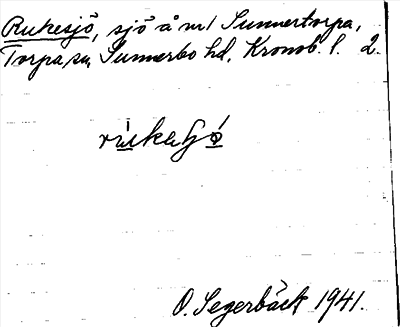 Rukesjö, sjö å m/ Sunnertorpa,
Torpa sn, Sunnerbo hd, Kronob. l. 2.
O. Segerbäck 1941.